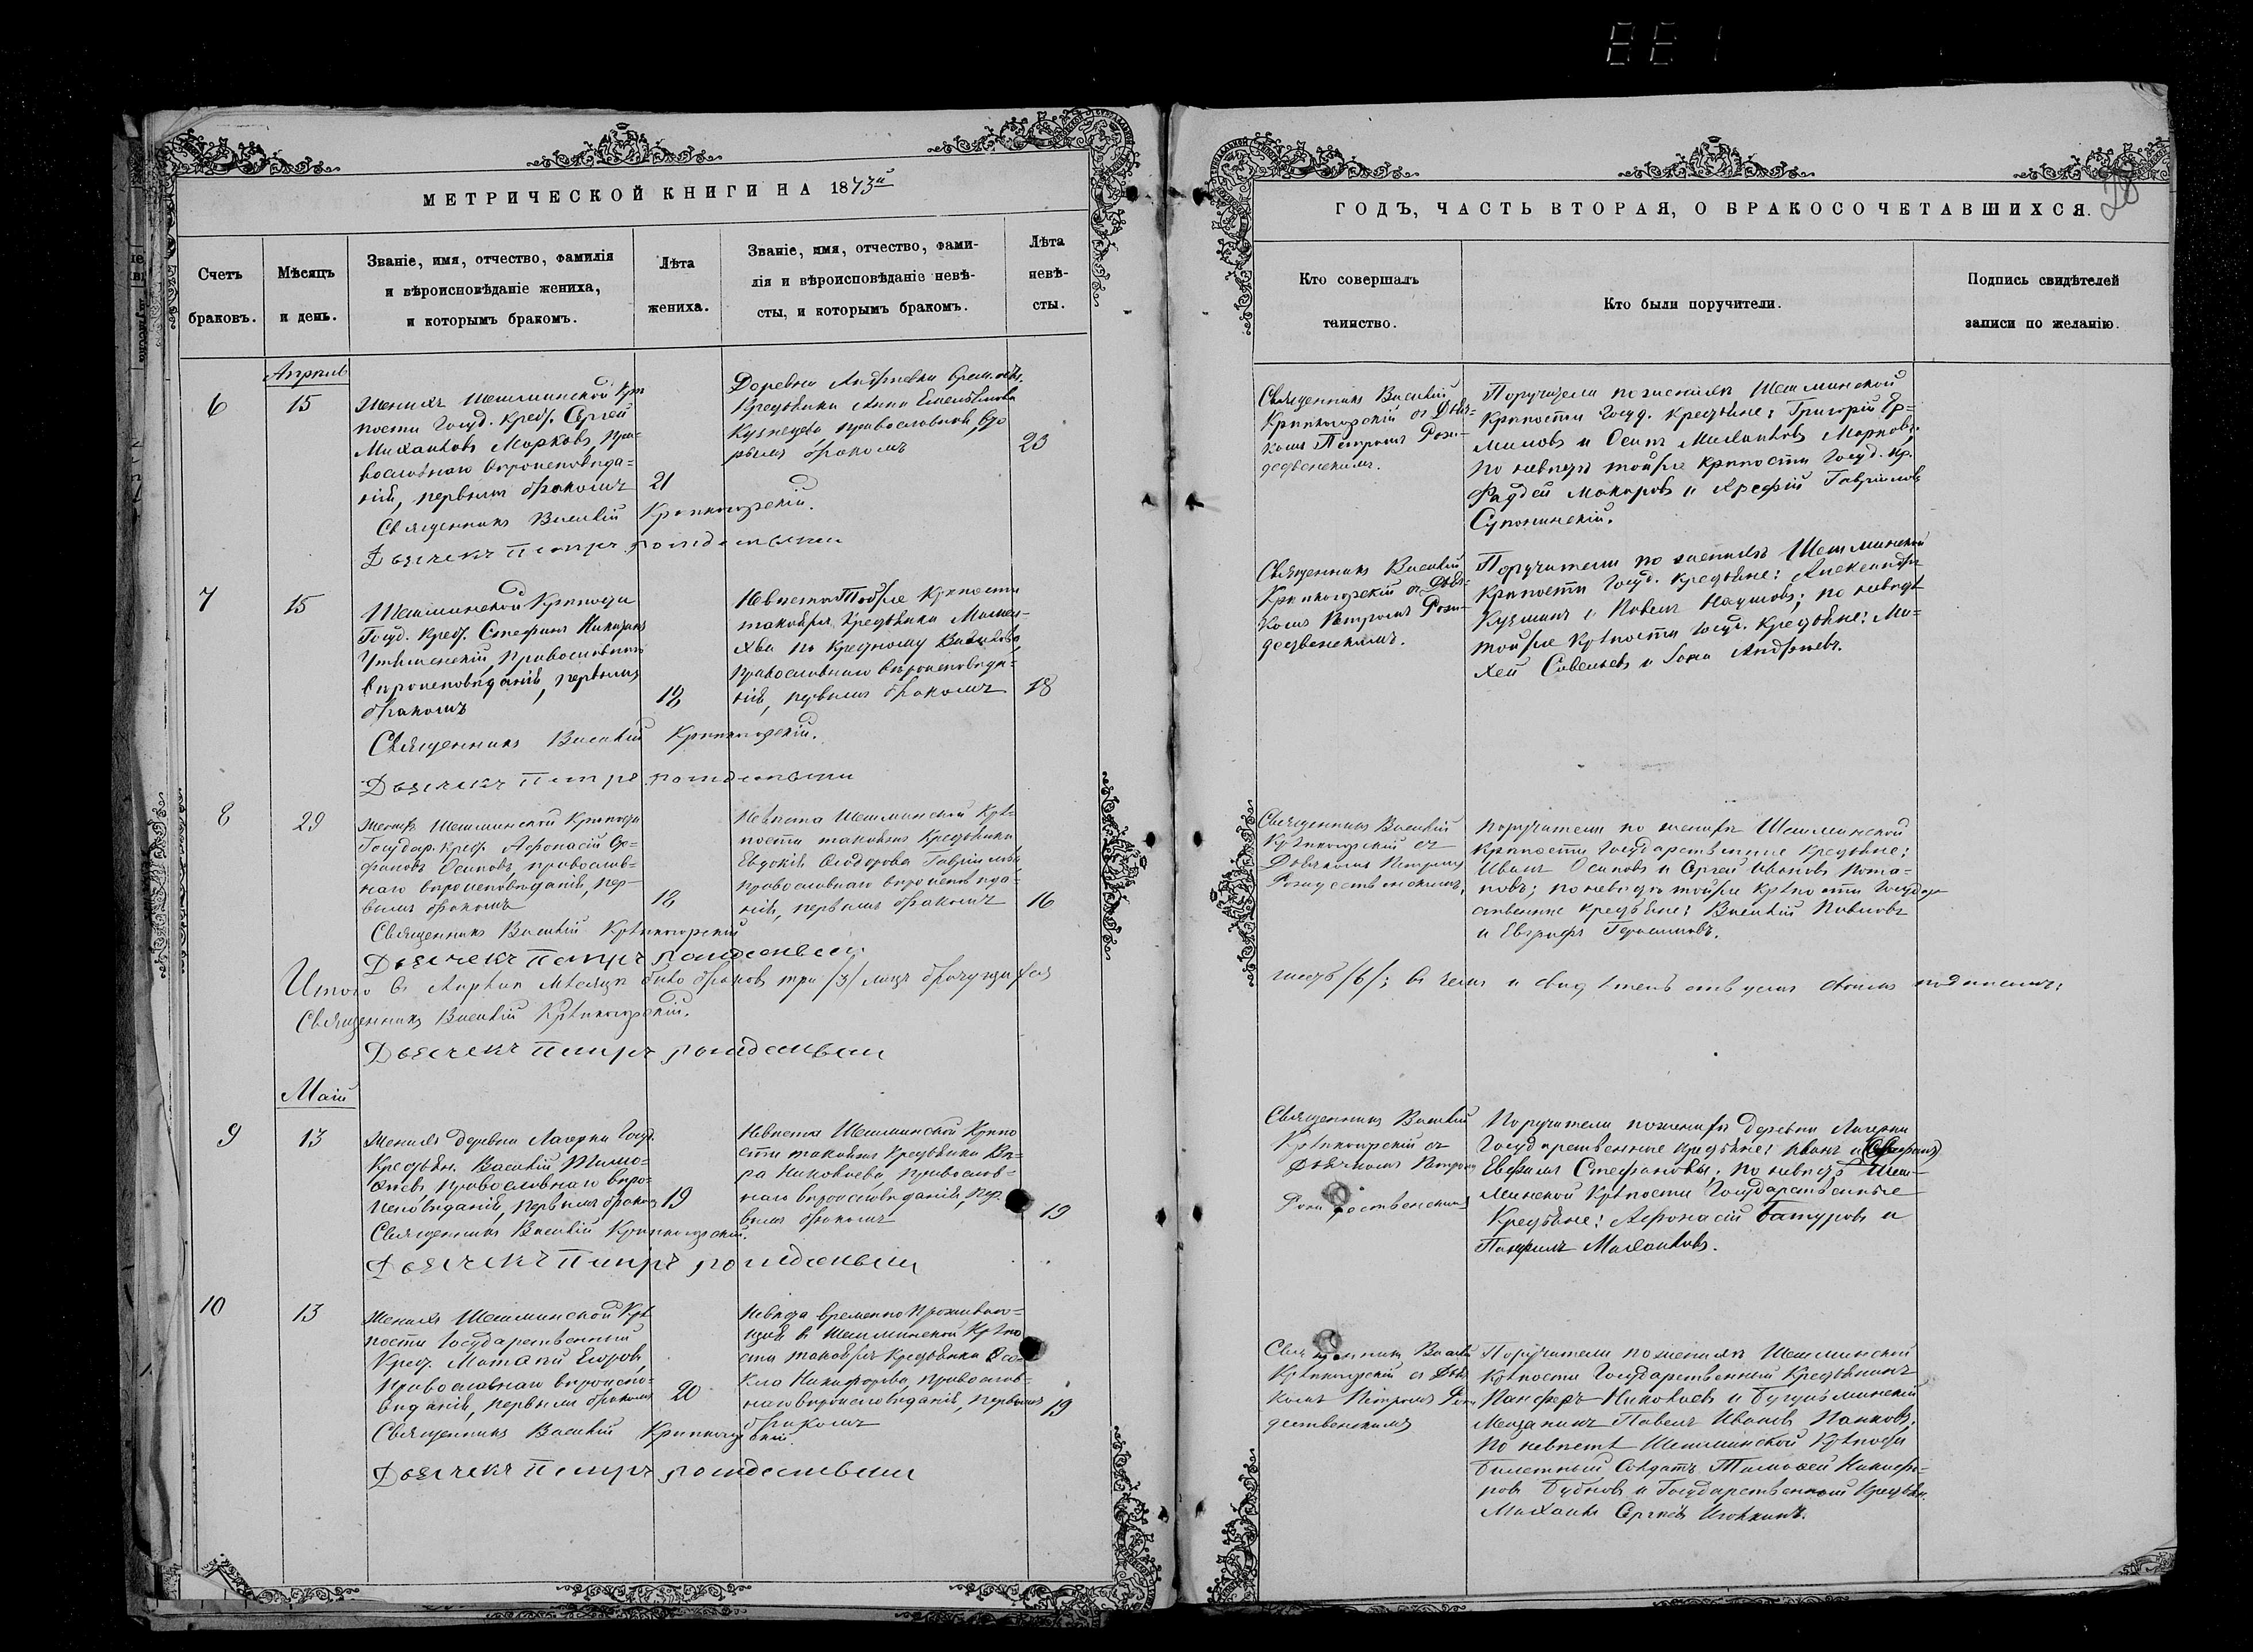 МЕТРИЧЕСКОЙ КНИГИ НА 1873й
Счетъ браковъ.
Мѣсяцъ и день.
Званіе, имя, отчество, фамилія
и вѣроисповѣданіе жениха,
и которымъ бракомъ.
Лѣта жениха.
Званіе, имя, отчество, фами-
лія и вѣроисповѣданіе невѣ-
сты, и которымъ бракомъ.
Лѣта невѣ-
сты.
Апрѣль
6
15
Женихъ Шешминской Крѣ
пости Госуд. Крес. Сергей
Михаиловъ Марковъ, пра-
вославнаго вѣроисповѣда-
нія, первымъ бракомъ
21
Деревни Андреевки
Крестьянка Анна Емельянова
Кузнецова православной, вто
рымъ бракомъ
23
Священникъ Василій Крѣпкогорскій.
Дьячекъ Петръ
7
15
Шешминской Крѣпости
Госуд. Крес. Стефанъ
православнаго
вѣроисповѣданія, первымъ
бракомъ
18
Невѣста Тойже Крѣпости
такойже Крестьянка
православнаго вѣроисповѣда-
нія, первымъ бракомъ
18
Священникъ Василій Крѣпкогорскій.
Дьячекъ Петръ
8
29
Женихъ Шешминской Крѣпости
Государ. Крес. Афонасій
Осиповъ, православ-
наго вѣроисповѣданія, пер-
вымъ бракомъ
18
Невѣста Шешминской Крѣ-
пости такаяже Крестьянка
Евдокія Ѳеодорова
православнаго вѣроисповѣда-
нія, первымъ бракомъ
16
Священникъ Василій Крѣпкогорскій
Дьячекъ Петръ
Итого въ Апрѣлѣ мѣсяцѣ было браковъ три /3/ лицъ брачущихся
Священникъ Василій Крѣпкогорскій.
Дьячекъ Петръ
Маій
9
13
Женихъ деревни Лагерки Госуд.
Крестьян. Василій Тимо-
ѳеевъ православнаго вѣро-
исповѣданія, первымъ бракомъ
19
Невѣста Шешминской Крѣпо
сти такаяже Крестьянка Вѣ-
ра Николаева православ-
наго вѣроисповѣданія, пер-
вымъ бракомъ
19
Священникъ Василій Крѣпкогорскій.
Дьячекъ Петръ
10
13
Женихъ Шешминской Крѣ
пости Государственный
Крес. Матвѣй Егоровъ
православнаго вѣроиспо-
вѣданія, первымъ бракомъ
20
Невѣста временно Проживаю-
щая въ Шешминской Крѣпо
сти такаяже Крестьянка
Никифорова православ-
наго вѣроисповѣданія, первымъ
бракомъ
19
Священникъ Василій Крѣпкогорскій.
Дьячекъ Петръ
ГОДЪ, ЧАСТЬ ВТОРАЯ, О БРАКОСОЧЕТАВШИХСЯ.
Кто совершалъ
таинство.
Кто были поручители.
Подпись свидѣтелей
записи по желанію.
Священникъ Василій
Крѣпкогорскій съ Дьяч-
комъ Петромъ Рож-
дественскимъ.
Поручители по женихѣ Шешминской
Крѣпости Госуд. крестьяне: Григорій Ер-
миловъ и Осипъ Михаиловъ Марковъ,
по невѣстѣ тойже крѣпости Госуд. кр.
Фаддей Макаровъ и Гавриловъ
Священникъ Василій
Крѣпкогорскій съ Дьяч-
комъ Петромъ Рож-
дественскимъ.
Поручители по женихѣ Шешминской
Крѣпости Госуд. крестьяне: Александръ
Кузминъ и Павелъ Наумовъ; по невѣстѣ
тойже Крѣпости госуд. крестьяне: Мо-
кей Савельевъ и Андреевъ.
Священникъ Василій
Крѣпкогорскій съ
Дьячкомъ Петромъ
Рождественскимъ,
Поручители по женихѣ Шешминской
Крѣпости Государственные Крестьяне:
Иванъ Осиповъ и Сергей Ивановъ Пота-
повъ; по невѣстѣ тойже Крѣпости Государ
ственные крестьяне: Василій Павловъ
и Евграфъ Герасимовъ.
шесть /6/; въ чемъ и свидѣтельствуемъ своимъ подписомъ:
Священникъ Василій
Крѣпкогорскій съ
Дьячкомъ Петромъ
Рождественскимъ
Поручители по женихѣ деревни Лагерки
Государственные крестьяне: Иванъ и
Евфимъ Стефановы, по невѣстѣ Шеш-
минской Крѣпости Государственные
Крестьяне: Афонасій Батуровъ и
Панфилъ Михаиловъ.
Священникъ Василій
Крѣпкогорскій съ Дьяч
комъ Петромъ Рож
дественскимъ
Поручители по женихѣ Шешминской
Крѣпости Государственный Крестьянинъ
Панферъ Николаевъ и Бугульминскій
Мещанинъ Павелъ Ивановъ Панковъ,
по невѣстѣ Шешминской Крѣпости
билетный Солдатъ Тимоѳей Никифо-
ровъ Бубновъ и Государственной Крестьян.
Михаилъ Сергѣевъ